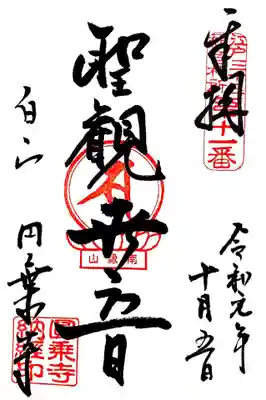 奉拝
十一番
聖観世音
南縁山
令和元年
十月五日
白山
円乗寺
圓乗寺
納経印